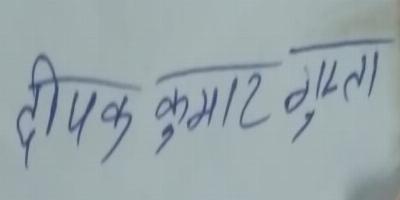 दीपक कुमार गुप्ता